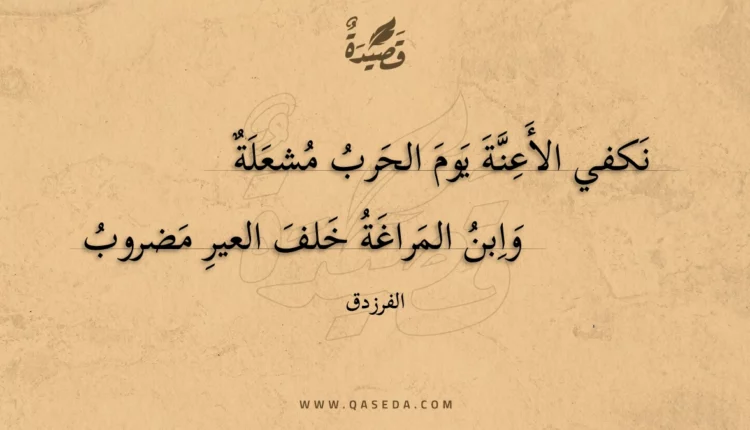 قَصِيْدَةٌ
نَكفي الأَعِنَّةَ يَومَ الحَربُ مُشعَلَةٌ
وَاِبنُ المَراغَةُ خَلفَ العيرِ مَضروبُ
الفرزدق
WWW.QASEDA.COM